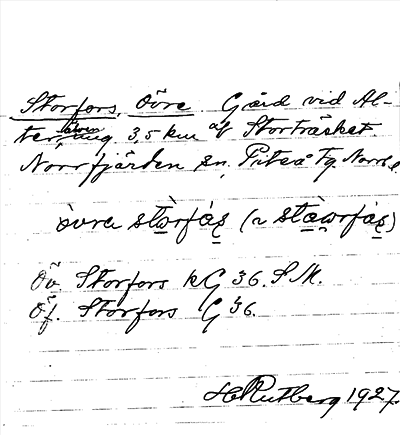 Storfors, Övre. Gård vid Al-
ter älven 3,5 km af Storträsket.
Norrfjärden sn, Piteå Tg. Norrb.
òvrə stɷ̀rfás̨ (~ stàɷrfás̨)
Öv. Storfors kG 36. S M.
Öf. Storfors G 36.
H Rutberg 1927.